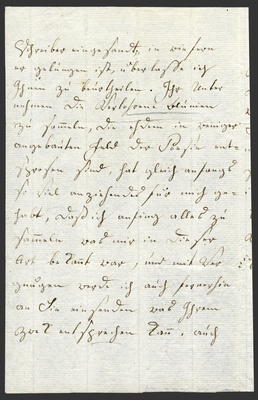 Schreiber eingesandt, in wiefern
er gelungen ist, überlasse ich
Ihnen zu beurtheilen. Ihr Unter
nehmen die Verlohrene Blümen
zu sammeln, die ehdem in weniger
angebauten Feld der Poesie ent-
sprosen sind, hat gleich anfangs
so viel anziehendes für mich ge-
habt, daß ich anfing alles zu
sammeln was mir in dieser
Art bekannt war, und mit Ver
gnügen werde ich auch fernerhin
an Sie einsenden was Ihrem
Zwek entsprechen kann, auch